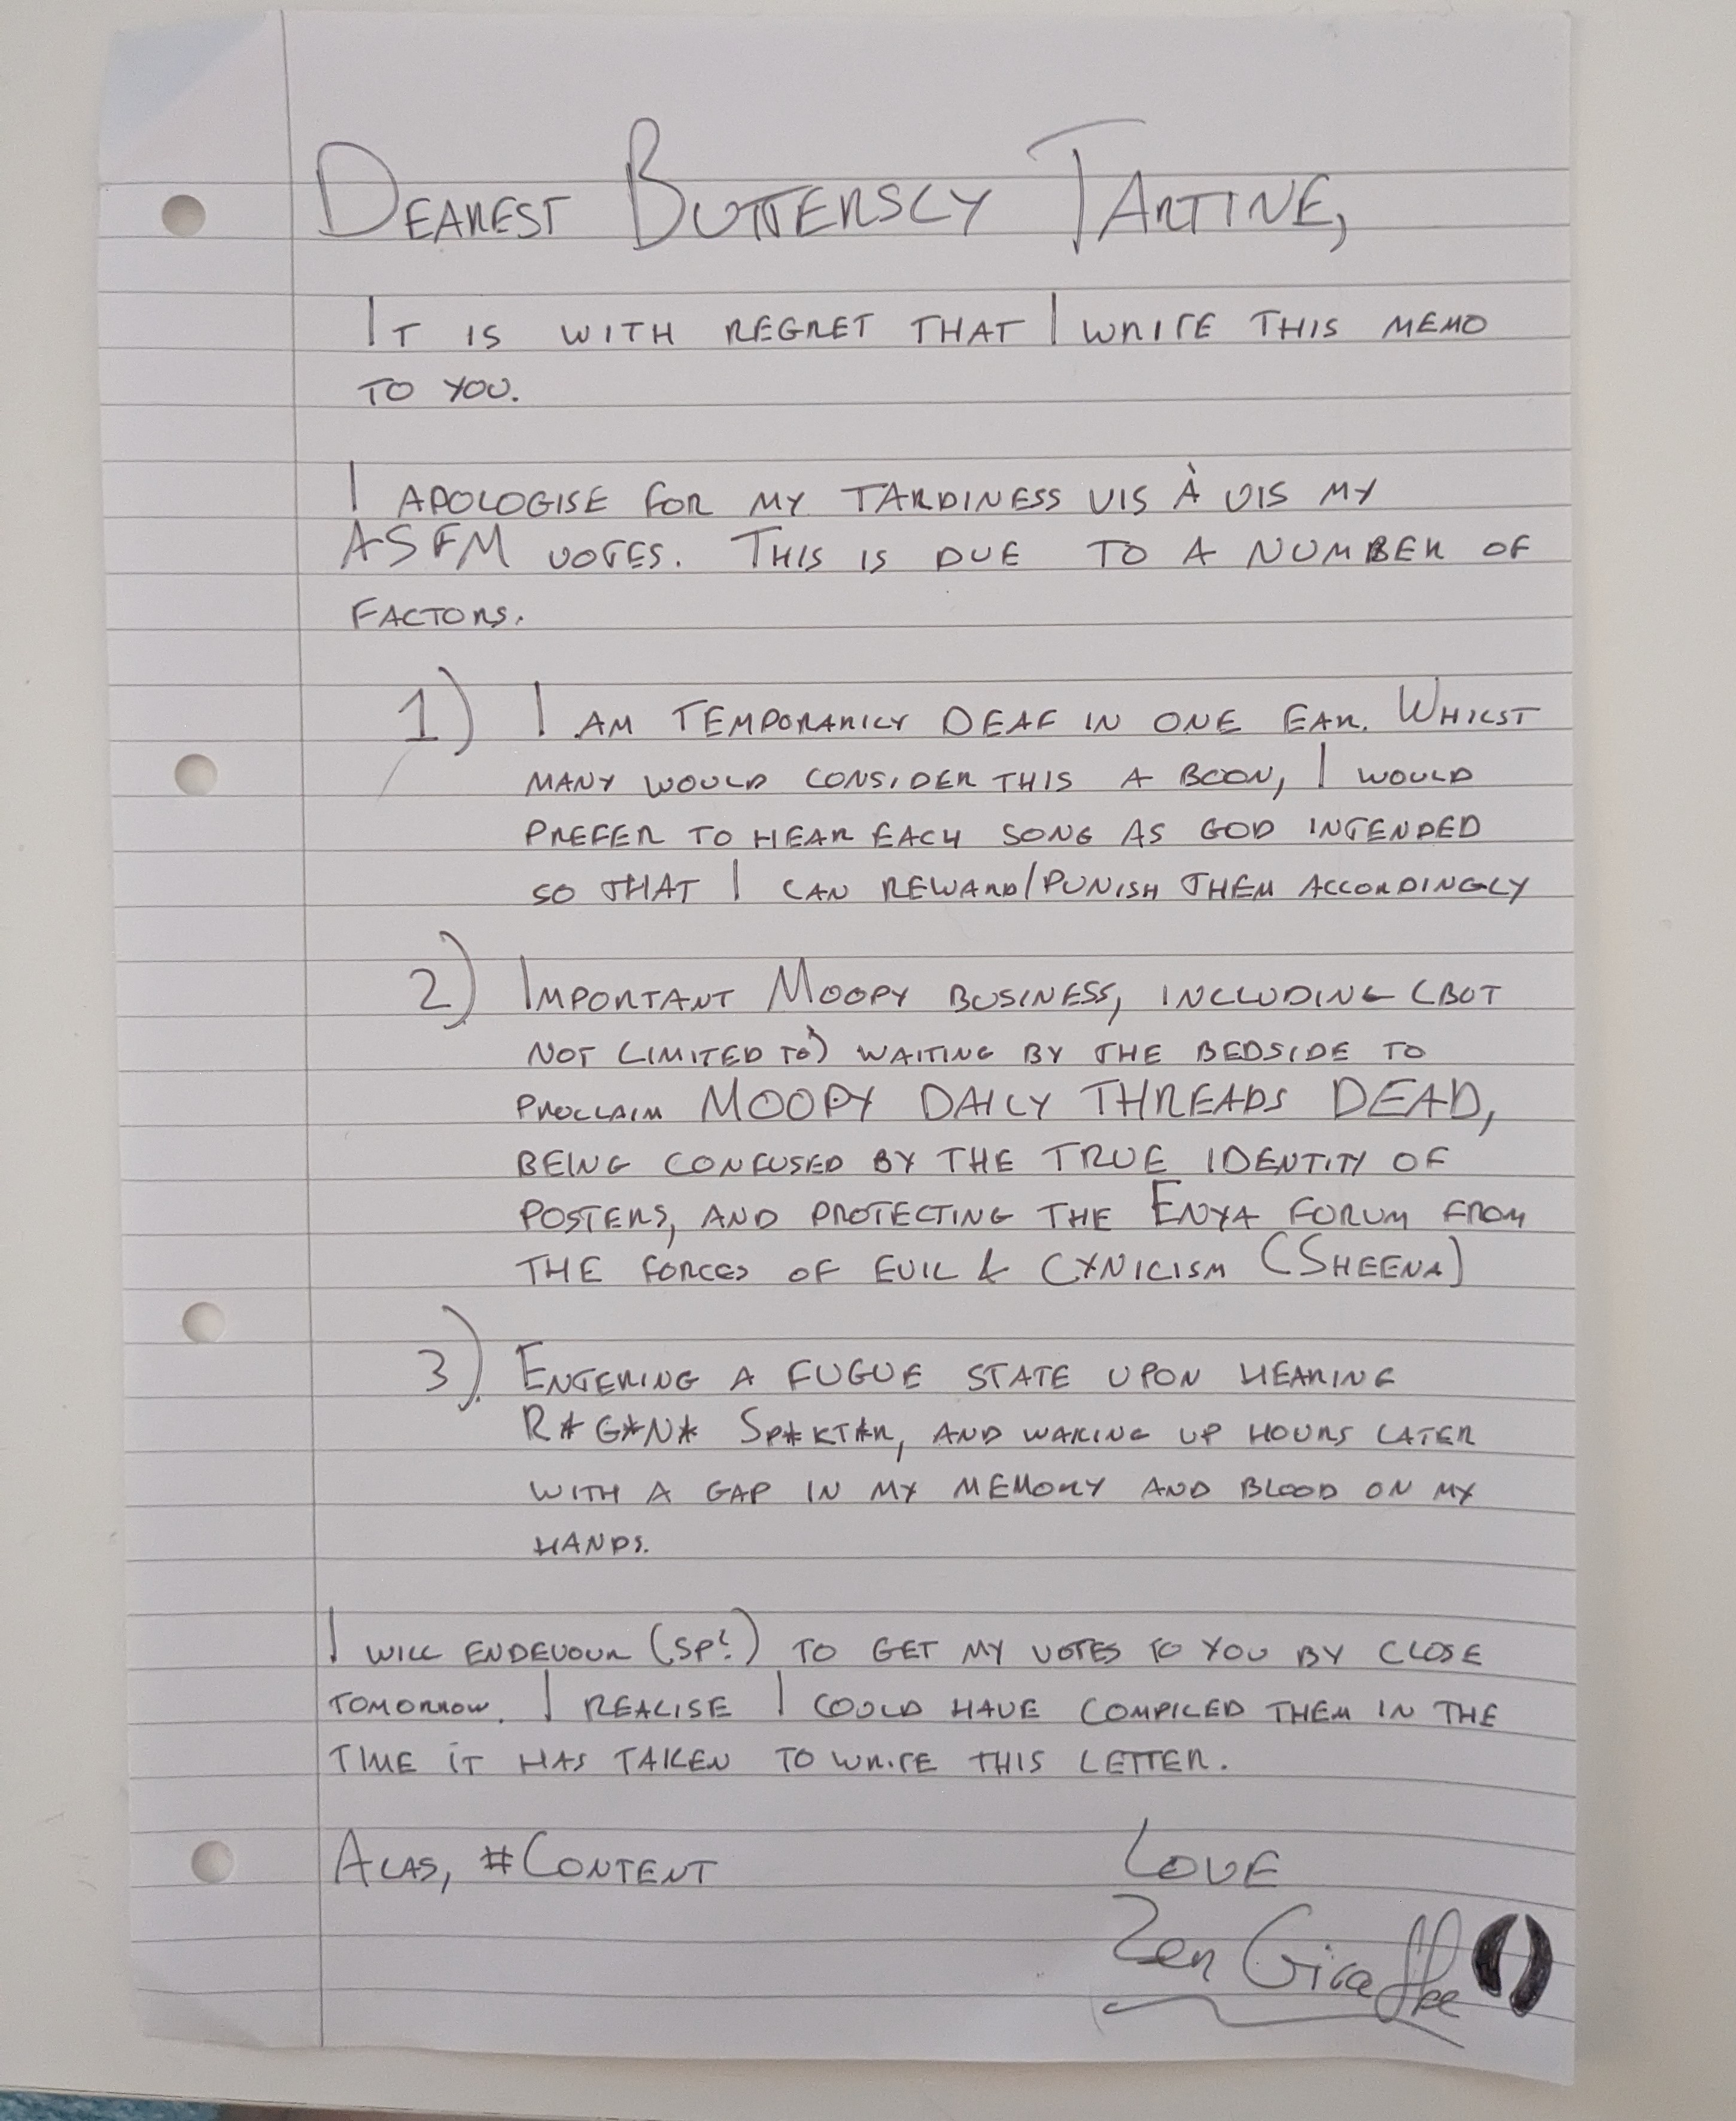 DEAREST BUTTERSCY TARTINE,
IT IS WITH REGRET THAT I WRITE THIS MEMO
TO YOU.
I APOLOGISE FOR MY TARDINESS VIS À VIS MY
ASFM VOTES. THIS IS DUE TO A NUMBER OF
FACTORS.
1) I AM TEMPORARILY DEAF IN ONE EAR. WHILST
MANY WOULD CONSIDER THIS A BOON, I WOULD
PREFER TO HEAR EACH SONG AS GOD INTENDED
SO THAT I CAN REWARD/PUNISH THEM ACCORDINGLY
2) IMPORTANT MOOPY BUSINESS, INCLUDING (BUT
NOT LIMITED TO) WAITING BY THE BEDSIDE TO
PROCLAIM MOOPY DAILY THREADS DEAD,
BEING CONFUSED BY THE TRUE IDENTITY OF
POSTERS, AND PROTECTING THE ENYA FORUM FROM
THE FORCES OF EVIL & CYNICISM (SHEENA)
3) ENTERING A FUGUE STATE UPON HEARING
R*G*N* SP*KT*R, AND WAKING UP HOURS LATER
WITH A GAP IN MY MEMORY AND BLOOD ON MY
HANDS.
I WILL ENDEVOUR (SP?) TO GET MY VOTES TO YOU BY CLOSE
TOMORROW. I REALISE I COULD HAVE COMPILED THEM IN THE
TIME IT HAS TAKEN TO WRITE THIS LETTER.
ALAS, #CONTENT
LOVE
Zen Giraffe